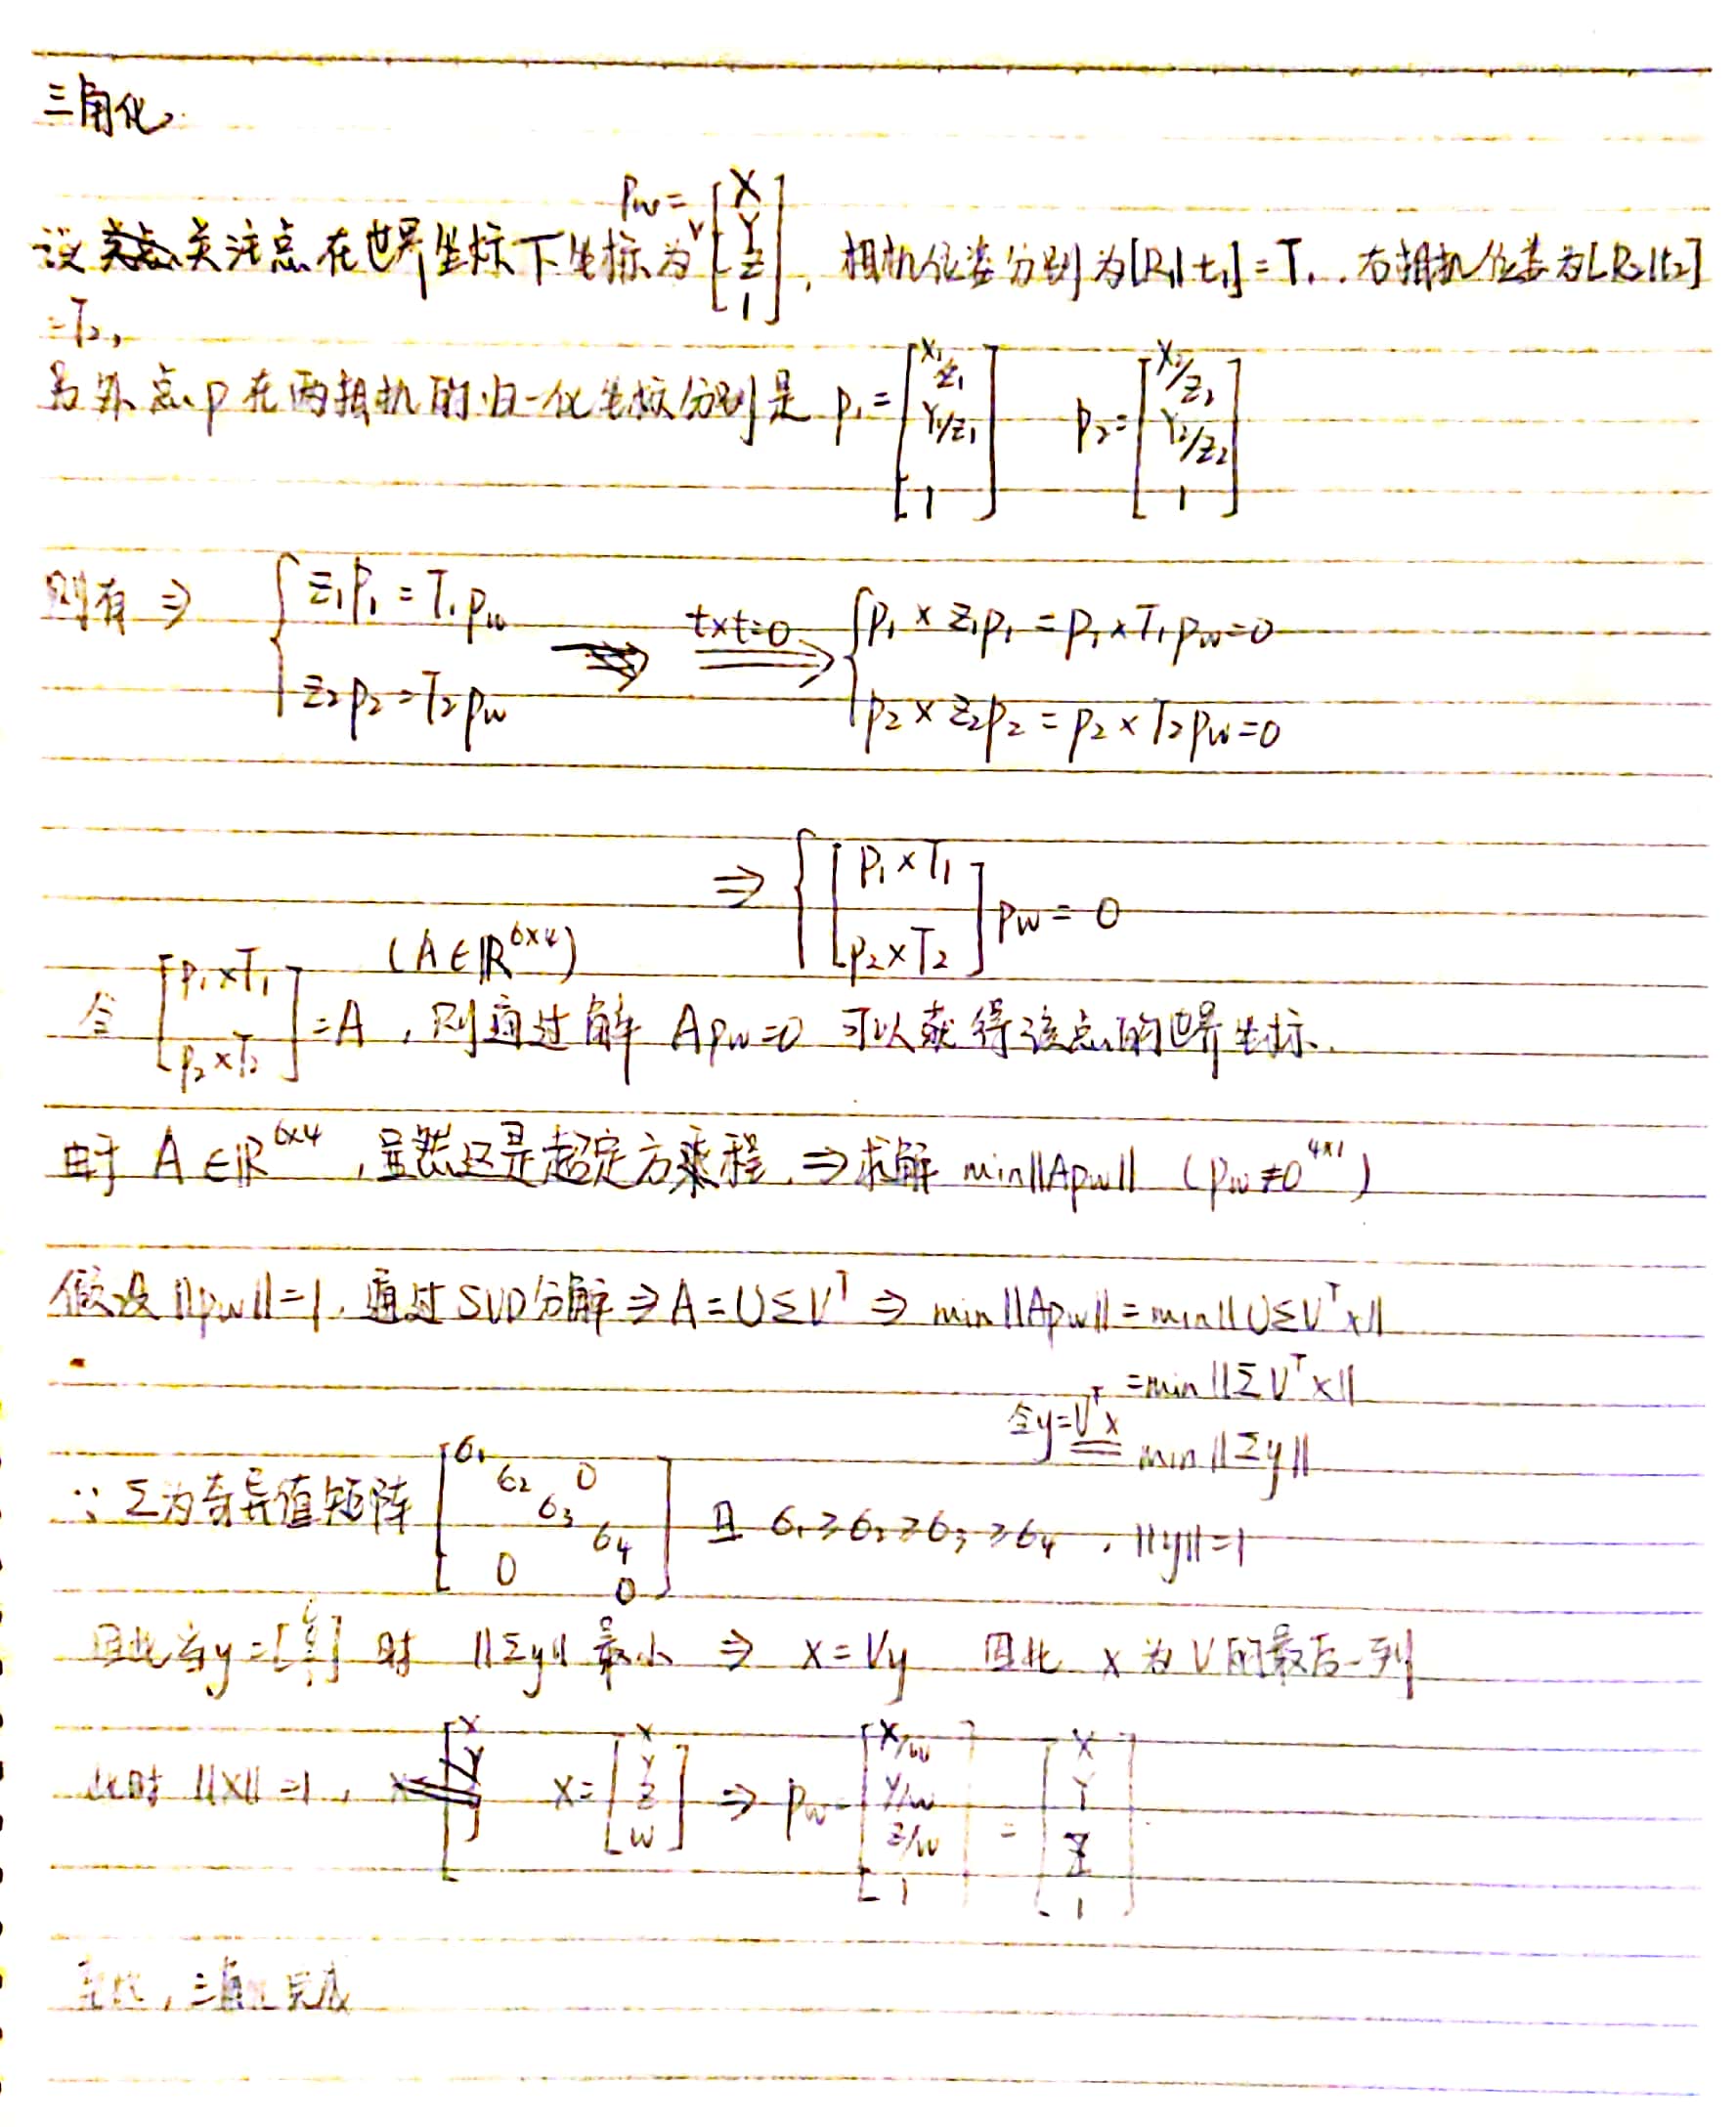 三角化
设关注点在世界坐标下坐标为 Pw = [X Y Z 1], 相机位姿分别为[R1|t1]=T1, 右相机位姿为[R2|t2]
=T2,
另外点p在两相机的归一化坐标分别是 p1 = [X1/Z1 Y1/Z1 1] p2 = [X2/Z2 Y2/Z2 1]
则有 ⇒ { z1p1 = T1pw ⟹ (t×t=0) { p1 × z1p1 = p1 × T1pw = 0
z2p2 = T2pw p2 × z2p2 = p2 × T2pw = 0
⇒ { [p1×T1 p2×T2] pw = 0
令 [p1×T1 p2×T2] = A, (A∈ℝ^6×4) 则通过解 Apw=0 可以获得该点的世界坐标.
由于 A∈ℝ^6×4, 显然这是超定方程, ⇒ 求解 min||Apw|| (pw≠0^4×1)
假设||pw||=1, 通过SVD分解 ⇒ A=UΣV^T ⇒ min||Apw|| = min||UΣV^Tx||
= min||ΣV^Tx||
令y=V^Tx = min||Σy||
∵ Σ为奇异值矩阵 [σ1 σ2 0 σ3 σ4 0 0] 且 σ1≥σ2≥σ3≥σ4, ||y||=1
因此当y=[ ] 时 ||Σy||最小 ⇒ x=Vy 因此 x为V的最后一列
此时 ||x||=1, x=[X Y Z W] ⇒ pw=[X/w Y/w Z/w 1] = [X Y Z 1]
至此, 三角化完成